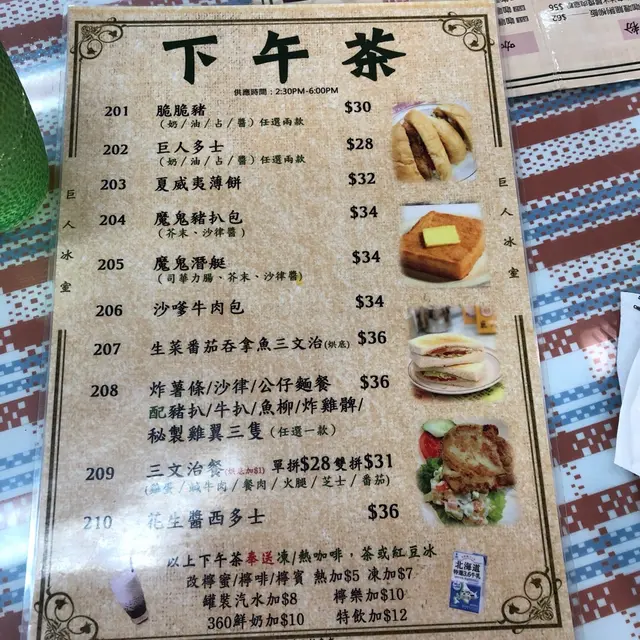 下午茶
供應時間：2:30PM-6:00PM
201 脆脆豬 $30
(奶/油/占/醬) 任選兩款
202 巨人多士 $28
(奶/油/占/醬) 任選兩款
203 夏威夷薄餅 $32
204 魔鬼豬扒包 $34
(芥末、沙律醬)
205 魔鬼潛艇 $34
(司華力腸、芥末、沙律醬)
206 沙嗲牛肉包 $34
207 生菜番茄吞拿魚三文治(烘底) $36
208 炸薯條/沙律/公仔麵餐 $36
配豬扒/牛扒/魚柳/炸雞髀/
秘製雞翼三隻 (任選一款)
209 三文治餐(烘底加$1) 單拼$28 雙拼$31
(雞蛋/鹹牛肉/餐肉/火腿/芝士/番茄)
210 花生醬西多士 $36
以上下午茶奉送凍/熱咖啡，茶或紅豆冰
改檸蜜/檸啡/檸賓 熱加$5 凍加$7
罐裝汽水加$8 檸樂加$10
360鮮奶加$10 特飲加$12
巨人冰室
巨人冰室
北海道
3.6牛乳
$62
$56
咖
粉